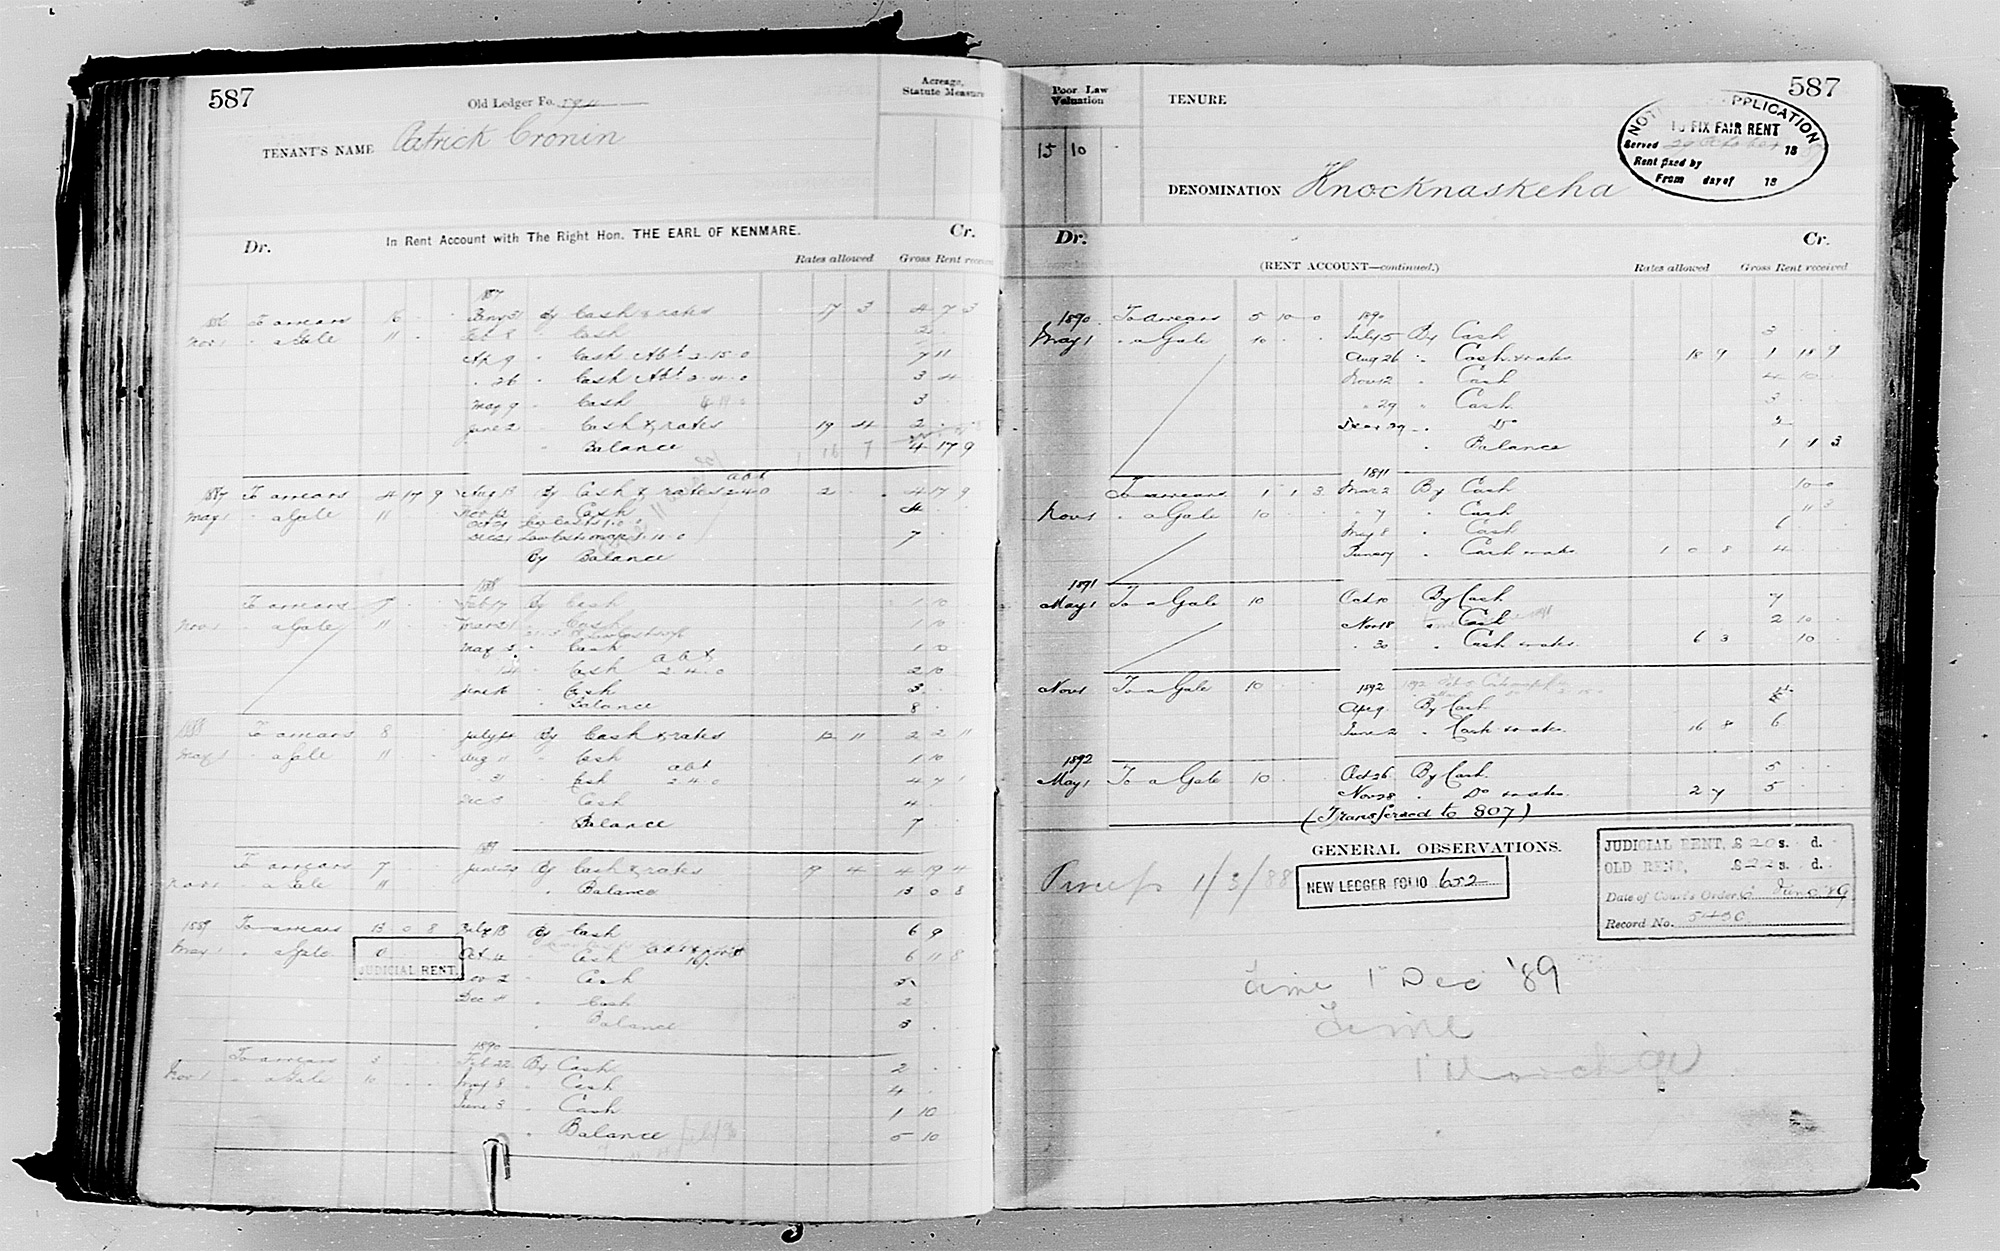 587
Old Ledger Fo.
Acreage, Statute Measure
TENANT'S NAME Patrick Cronin
Dr. In Rent Account with The Right Hon. THE EARL OF KENMARE. Cr.
Rates allowed Gross Rent received
1887
1886 To arrears 16 Jany 31 By Cash & rates 17 3 4 7 3
Nov 1 " a Gale 11 Feb 8 " Cash 2
Ap 9 " Cash Abt. 2.15.0 7 11
" 26 " Cash Abt. 2.4.0 3 4
May 9 " Cash 3
June 2 " Cash & rates 19 4 2
" Balance 4 17 9
1887 To arrears 4 17 9 Aug 13 By Cash & rates abt 2.4.0 2 4 17 9
May 1 " a Gale 11 Nov 12 " Cash 4
Oct 21 Law Costs 1.0
Dec 21 Law Costs 7
By Balance
1888
To arrears 7 Feb 17 By Cash 1 10
Nov 1 " a Gale 11 Mar 21 " Cash 1 10
May " Cash 1 0
" Cash abt 2.4.0 2 10
June 16 " Cash 3
" Balance 8
1888 To arrears 8 July 24 By Cash & rates 12 11 2 2 11
May 1 " a Gale 11 Aug 11 " Cash 1 10
" 31 " Cash abt 2.4.0 4 7 1
Dec 8 " Cash 4
" Balance 7
1889
To arrears 7 June 29 By Cash & rates 9 4 4 19 4
Nov 1 " a Gale 11 " Balance 13 0 8
1889 To arrears 13 0 8 July 18 By Cash 6 9
May 1 " a Gale Oct 12 " Cash 6 11 8
JUDICIAL RENT
Nov 2 " Cash 5
Dec 4 " Cash 2
" Balance 3
1890
To arrears 3 Feb 22 By Cash 2
Nov 1 " a Gale 10 May 8 " Cash 4
June 3 " Cash 1 10
" Balance 5 10
Poor Law Valuation
15 10
TENURE
587
DENOMINATION Knocknaskeha
APPLICATION
TO FIX FAIR RENT
Served 18
Rent fixed by
From day of 18
Dr. (RENT ACCOUNT—continued.) Cr.
Rates allowed Gross Rent received
1890 To arrears 5 10 0 1890
May 1 " a Gale 10 July 5 By Cash 3
Aug 26 " Cash & rates 18 9 1 18 9
Nov 12 " Cash 4 10
" 29 " Cash 3
Decr 29 " Do 2
" Balance 1 1 3
1891
To arrears 1 1 3 Mar 2 By Cash 10 0
Nov 1 " a Gale 10 " 7 " Cash 11 3
May 8 " Cash 6
" Cash & rates 1 0 8 4
1891
May 1 To a Gale 10 Oct 10 By Cash 7
Nov 18 " Cash 2 10
" 30 " Cash & rates 6 3 10
Nov 1 To a Gale 10 1892
Ap 9 By Cash 4
June 2 " Cash & rates 16 8 6
1892
May 1 To a Gale 10 Oct 26 By Cash 5
Nov 28 " Do & rates 2 7 5
(Transferred to 807)
GENERAL OBSERVATIONS.
1/3/88
NEW LEDGER FOLIO 652
JUDICIAL RENT, £20 s. d.
OLD RENT, £22 s. d.
Date of Court's Order, 6 June '89
Record No. 5490
Time 1st Dec '89
Time
1st March